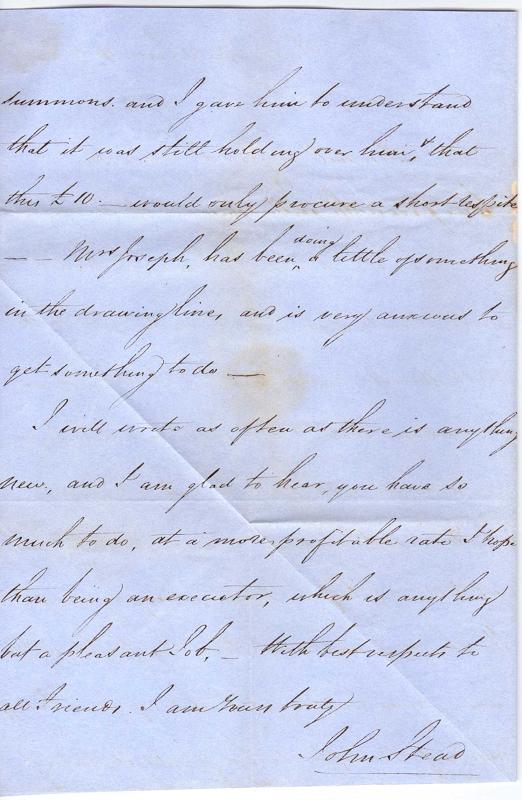 summons. and I gave him to understand
that it was still holding over him, & that
this £10 — would only procure a short respite
— — Mrs Joseph, has been doing a little of something
in the drawing line, and is very anxious to
get something to do —
I will write as often as there is anything
new, and I am glad to hear, you have so
much to do, at a more profitable rate I hope
than being an executor, which is anything
but a pleasant Job, — With best respects to
all Friends. I am Yours truly
John Stead